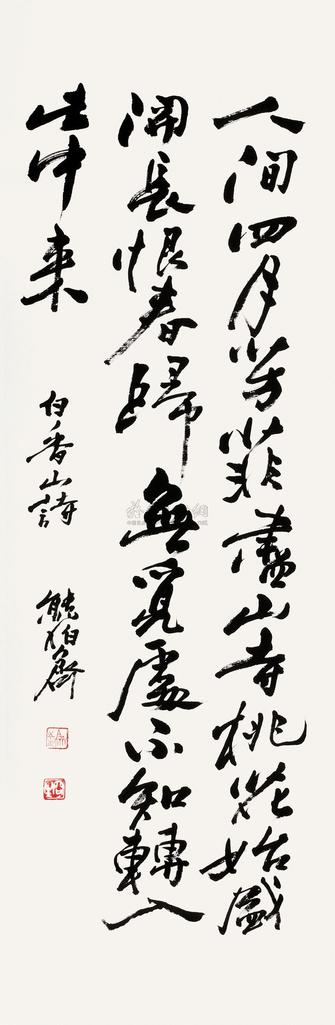 人間四月芳菲盡山寺桃花始盛
開長恨春歸無覓處不知轉入
此中来
白香山詩
熊伯齊